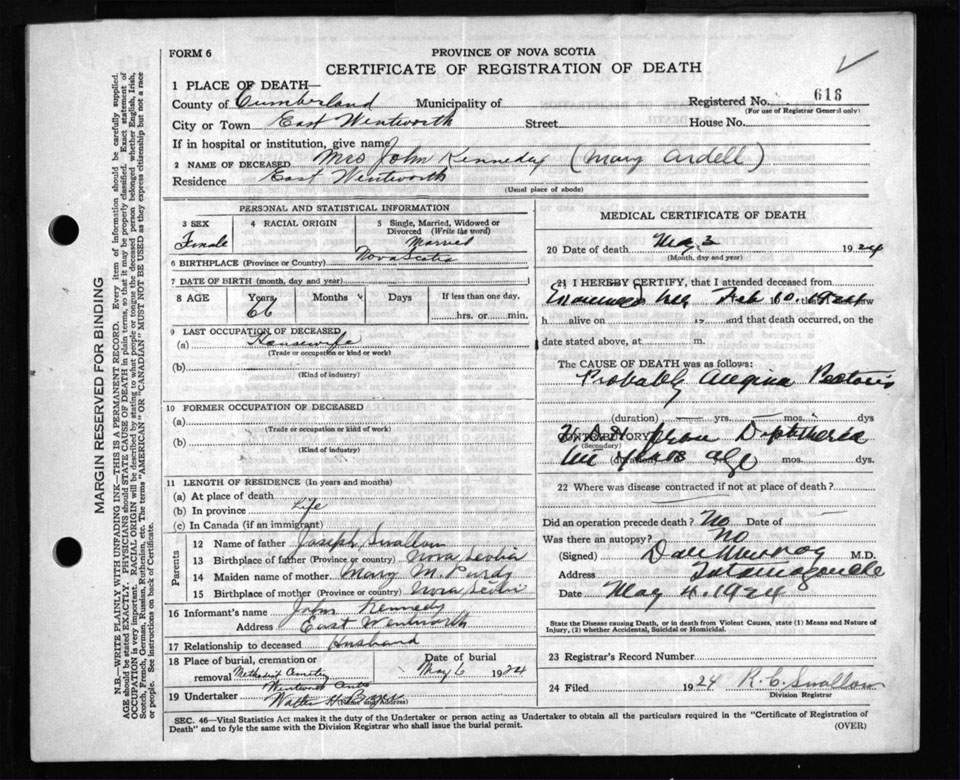 FORM 6
PROVINCE OF NOVA SCOTIA
CERTIFICATE OF REGISTRATION OF DEATH
1 PLACE OF DEATH—
County of Cumberland Municipality of
Registered No. 616
(For use of Registrar General only)
City or Town East Wentworth Street House No.
If in hospital or institution, give name
2 NAME OF DECEASED Mrs John Kennedy (Mary Ardell)
Residence East Wentworth
(Usual place of abode)
PERSONAL AND STATISTICAL INFORMATION
3 SEX 4 RACIAL ORIGIN 5 Single, Married, Widowed or Divorced (Write the word)
Female Married
6 BIRTHPLACE (Province or Country) Nova Scotia
7 DATE OF BIRTH (month, day and year)
8 AGE Years Months Days If less than one day,
66 hrs. or min.
9 LAST OCCUPATION OF DECEASED
(a) Housewife
(Trade or occupation or kind or work)
(b)
(Kind of industry)
10 FORMER OCCUPATION OF DECEASED
(a)
(Trade or occupation or kind of work)
(b)
(Kind of industry)
11 LENGTH OF RESIDENCE (In years and months)
(a) At place of death
(b) In province Life
(c) In Canada (if an immigrant)
Parents
12 Name of father Joseph Swallow
13 Birthplace of father (Province or country) Nova Scotia
14 Maiden name of mother Mary M. Purdy
15 Birthplace of mother (Province or country) Nova Scotia
16 Informant's name John Kennedy
Address East Wentworth
17 Relationship to deceased Husband
18 Place of burial, cremation or removal Methodist Cemetry
Wentworth
Date of burial
May 6 1924
19 Undertaker Walter H.
(Name and Address)
MEDICAL CERTIFICATE OF DEATH
20 Date of death May 3 1924
(Month, day and year)
21 I HEREBY CERTIFY, that I attended deceased from
Feb 10
h alive on 19 and that death occurred, on
date stated above, at m.
The CAUSE OF DEATH was as follows:
Probably Angina Pectoris
(duration) yrs. mos. dys
CONTRIBUTORY
(Secondary)
Diphtheria
years ago mos. dys.
22 Where was disease contracted if not at place of death?
Did an operation precede death? No Date of
Was there an autopsy? No
(Signed) Dan Murray M.D.
Address Tatamagouche
Date May 4. 1924
State the Disease Causing Death, or in death from Violent Causes, state (1) Means and Nature of
Injury, (2) whether Accidental, Suicidal or Homicidal.
23 Registrar's Record Number
24 Filed 1924 K. C. Swallow
Division Registrar
SEC. 46—Vital Statistics Act makes it the duty of the Undertaker or person acting as Undertaker to obtain all the particulars required in the "Certificate of Registration of
Death" and to fyle the same with the Division Registrar who shall issue the burial permit.
(OVER)
MARGIN RESERVED FOR BINDING
N.B.—WRITE PLAINLY WITH UNFADING INK—THIS IS A PERMANENT RECORD. Every item of information should be carefully supplied.
AGE should be stated EXACTLY. PHYSICIANS should STATE CAUSE OF DEATH in plain terms, so that it may be properly classified. Exact statement of
OCCUPATION is very important. RACIAL ORIGIN will be described by stating to what people or tongue the deceased person belonged whether English, Irish,
Scotch, French, German, Russian, Ruthenian, etc. The terms "AMERICAN" OR "CANADIAN" MUST NOT BE USED as they express citizenship but not a race
or people. See instructions on back of Certificate.